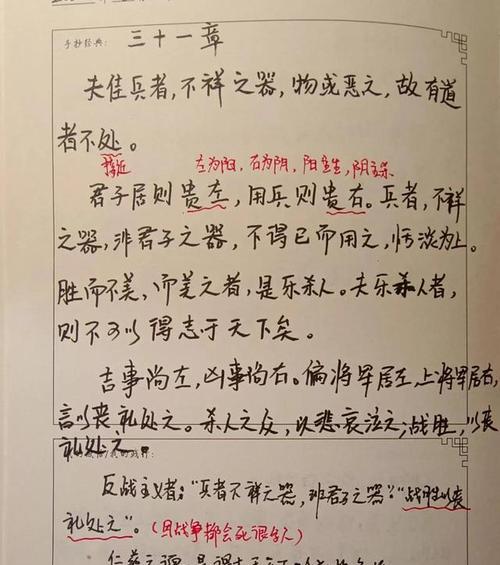 手抄经典: 三十一章
夫佳兵者，不祥之器，物或恶之，故有道
者不处。
接近 左为阳，右为阴，阳主生，阴主杀
君子居则贵左，用兵则贵右。兵者，不祥
之器，非君子之器，不得已而用之，恬淡为上。
胜而不美，而美之者，是乐杀人。夫乐杀人者，
则不可以得志于天下矣。
吉事尚左，凶事尚右。偏将军居左，上将军居右，
言以丧礼处之。杀人之众，以悲哀泣之；战胜，以丧
礼处之。
反战主义者："兵者不祥之器，非君子之器"."战胜以丧
礼处之"。(因战争都会死很多人)